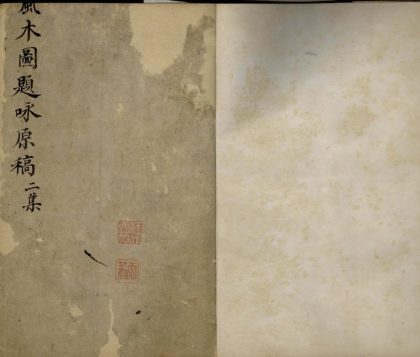 風木圖題咏原稿二集